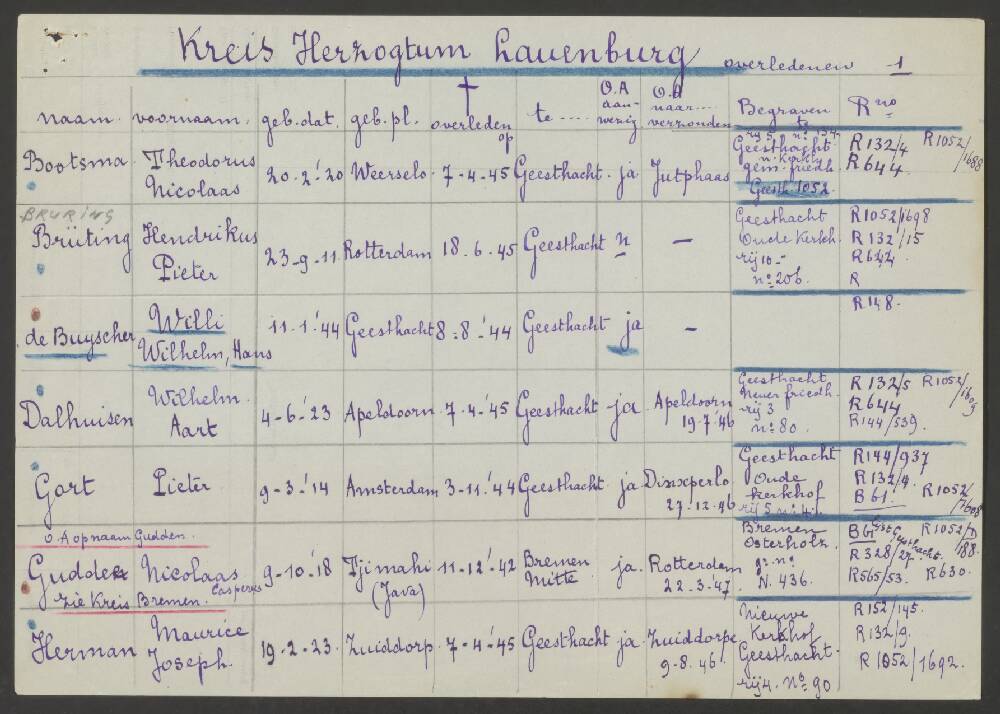 Kreis Herzogtum Lauenburg overledenen 1
naam. voornaam. geb.dat. geb.pl. † overleden op te .... O.A aan-wezig O.A naar.... verzonden Begraven te R no
Bootsma Theodorus Nicolaas 20-2-'20 Weerselo 7-4-45 Geesthacht ja Jutphaas
rij 5 n° 134.
Geesthacht
n. Kerkh.
gem. friedh.
Geesth 1052.
R132/4 R1052/1688
R644.
BRURING
Brüting Hendrikus Pieter 23-9-11 Rotterdam 18-6-45 Geesthacht n —
Geesthacht
Oude Kerkh.
rij 10-
n° 206.
R1052/1698
R132/15
R644.
R
de Buyscher Willi
Wilhelm, Hans
11-1-'44 Geesthacht 8-8-'44 Geesthacht ja —
R148.
Dalhuisen Wilhelm Aart 4-6-'23 Apeldoorn 7-4-'45 Geesthacht ja Apeldoorn 19-7-'46
Geesthacht
Neuer friedh.
rij 3
n° 80.
R132/5 R1052/1609
R644
R144/539.
Gort Pieter 9-3-'14 Amsterdam 3-11-'44 Geesthacht ja Dinxperlo 27-12-46
Geesthacht
Oude
Kerkhof
rij 5 n° 4.
R144/937
R132/9.
B61. R1052/1608
O.A op naam Gudden.
Gudde Nicolaas Casperus 9-10-'18 Tjimahi (Java) 11-12-'42 Bremen Mitte ja Rotterdam 22-3-'47
zie Kreis Bremen.
Bremen
Osterholz
gr. n°
N. 436.
BG Geesthacht. R1052/D 188.
R328/27
R565/53. R630.
Herman Maurice Joseph. 19-2-23 Zuiddorp. 7-4-'45 Geesthacht ja Zuiddorpe 9-8-46
Nieuwe
Kerkhof
Geesthacht-
rij 4. N° 90
R152/145.
R132/9.
R1052/1692.